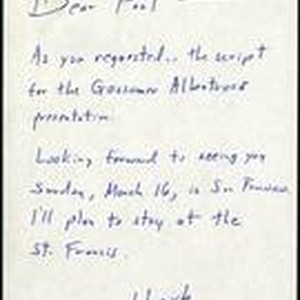 Dear Paul
As you requested.. the script
for the Gossamer Albatross
presentation.
Looking forward to seeing you
Sunday, March 16, in San Francisco.
I'll plan to stay at the
St. Francis.